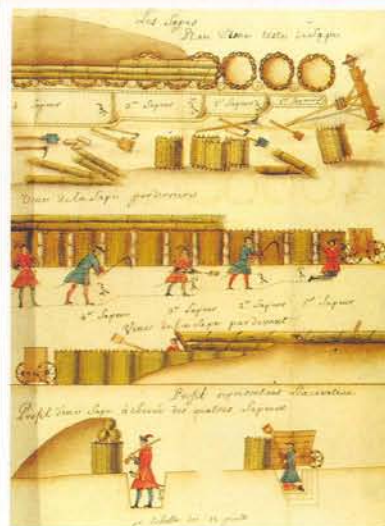 Les Sapes
Plan d'une teste de Sape
4 Sapeur 3e Sapeur 2e Sapeur 1er Sapeur
Veüe de la Sape par derriere
4e Sapeur 3e Sapeur 2e Sapeur 1er Sapeur
Veüe de la Sape par devant
Profil representant l'excavation
Profil d'une Sape achevée des quatres Sapeurs
Echelle de 12 pieds